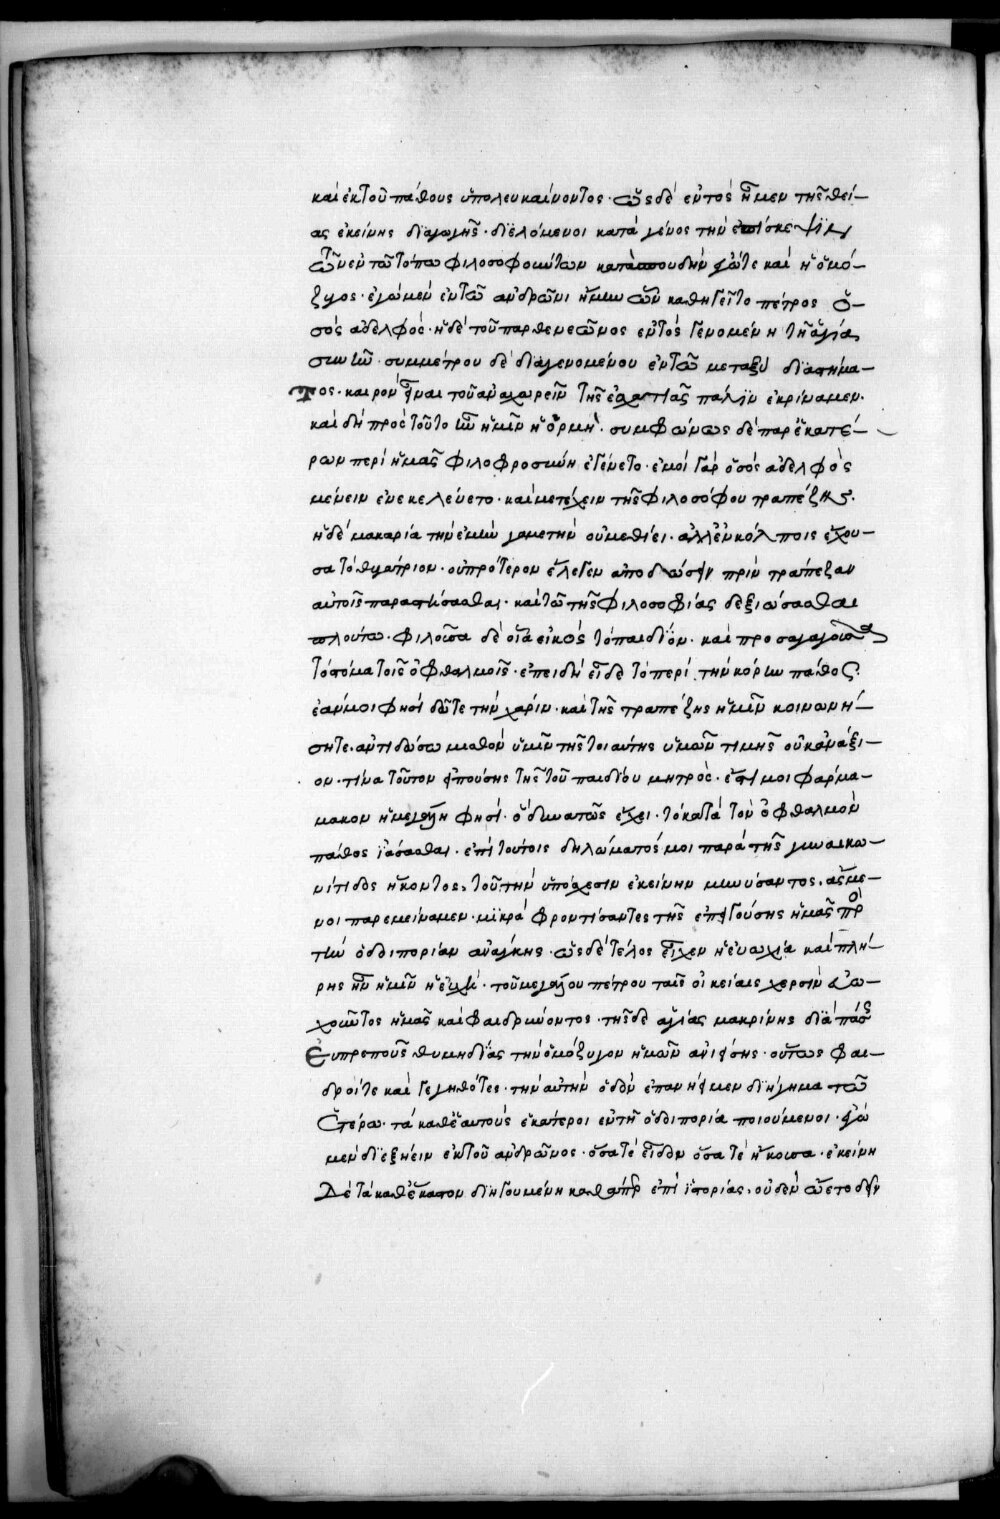 καὶ ἐκ τοῦ πάθους ὑπολευκαίνοντος · ὡς δὲ ἐντὸς ἦμεν τῆς θεί-
ας ἐκείνης διαγωγῆς · διελόμενοι κατὰ γένος τὴν ἐπίσκεψιν
τῶν ἐν τῷ τόπῳ φιλοσοφούντων κατὰ σπουδὴν ἐγώτε καὶ ἡ ὁμό-
ζυγος · ἐγὼ μὲν ἐν τῷ ἀνδρῶνι ἤμην ὧν καθηγεῖτο πέτρος ὁ
σὸς ἀδελφός · ἡ δὲ τοῦ παρθενεῶνος ἐντὸς γενομένη τῇ ἁγίᾳ
συνῆν · συμμέτρου δὲ διαγενομένου ἐν τῷ μεταξὺ διαστήμα-
τος · καιρὸν εἶναι τοῦ ἀναχωρεῖν τῆς ἐσχατιᾶς πάλιν ἐκρίναμεν ·
καὶ δὴ πρὸς τοῦτο ἦν ἡμῖν ἡ ὁρμή · συμφώνως δὲ παρ ἑκατέ-
ρων περὶ ἡμᾶς φιλοφροσύνη ἐγένετο · ἐμοὶ γὰρ ὁ σὸς ἀδελφὸς
μένειν ἐνεκελεύετο · καὶ μετέχειν τῆς φιλοσόφου τραπέζης ·
ἡ δὲ μακαρία τὴν ἐμὴν γαμετὴν οὐ μεθίει · ἀλλ ἐν κόλποις ἔχου-
σα τὸ θυγάτριον · οὐ πρότερον ἔλεγεν ἀποδώσειν πρὶν τράπεζαν
αὐτοῖς παραστήσασθαι · καὶ τῷ τῆς φιλοσοφίας δεξιώσασθαι
πλούτῳ · φιλοῦσα δὲ οἷα εἰκὸς τὸ παιδίον · καὶ προσαγαγοῦσα
τὸ στόμα τοῖς ὀφθαλμοῖς · ἐπειδὴ εἶδε τὸ περὶ τὴν κόρην πάθος ·
ἐὰν μοι φησὶ δῶτε τὴν χάριν · καὶ τῆς τραπέζης ἡμῖν κοινωνή-
σητε · ἀντιδώσω μισθὸν ὑμῖν τῆς τοιαύτης ὑμῶν τιμῆς οὐκ ἀνάξι-
ον · τίνα τοῦτον εἰπούσης τῆς τοῦ παιδίου μητρός · ἔστι μοι φάρμα-
μακον ἡ μεγάλη φησί · ὃ δυνατῶς ἔχει · τὸ κατὰ τὸν ὀφθαλμὸν
πάθος ἰάσασθαι · ἐπὶ τούτοις δηλώματός μοι παρὰ τῆς γυναικω-
νίτιδος ἥκοντος, τοῦ τὴν ὑπόσχεσιν ἐκείνην μηνύσαντος, ἄσμε-
νοι παρεμείναμεν · μικρὰ φροντίσαντες τῆς ἐπειγούσης ἡμᾶς πρὸ
τὴν ὁδοιπορίαν ἀνάγκης · ὡς δὲ τέλος εἶχεν ἡ εὐωχία καὶ πλή-
ρης ἦν ἡμῖν ἡ εὐχή · τοῦ μεγάλου πέτρου ταῖς οἰκείαις χερσὶν εὐω-
χοῦντος ἡμᾶς καὶ φαιδρύνοντος · τῆς δὲ ἁγίας μακρίνης διὰ πάσης
εὐπρεποῦς θυμηδίας τὴν ὁμόζυγον ἡμῶν ἀνιείσης · οὕτως φαι-
δροί τε καὶ γεγηθότες · τὴν αὐτὴν ὁδὸν ἐπανῄειμεν διήγημα τῷ
ἑτέρῳ · τὰ καθ ἑαυτοὺς ἑκάτεροι ἐν τῇ ὁδοιπορίᾳ ποιούμενοι · ἐγὼ
μὲν διεξῄειν ἐκ τοῦ ἀνδρῶνος · ὅσα τὲ εἶδον ὅσα τὲ ἤκουσα · ἐκείνη
δὲ τὰ καθέκαστον διηγουμένη καθάπερ ἐπὶ ἱστορίας, οὐδὲν ᾤετο δεῖν